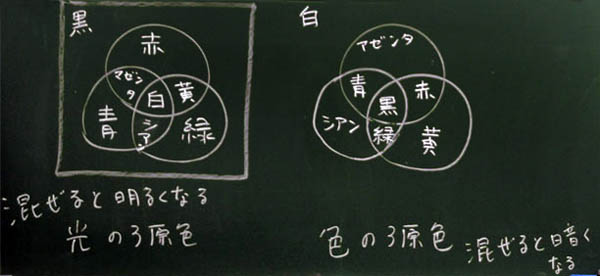 黒
赤
マゼン
タ
白
黄
青
シ
アン
緑
混ぜると明るくなる
光の3原色
白
アゼンタ
青
黒
赤
シアン
緑
黄
色の3原色
混ぜると暗く
なる